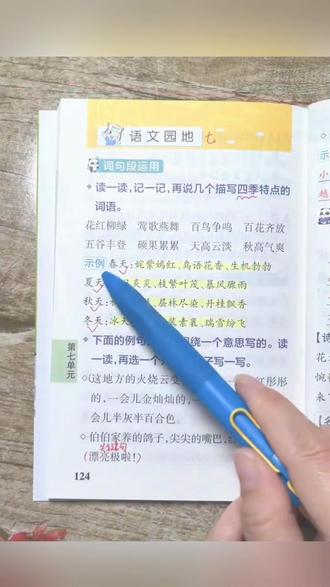 语文园地 七
词句段运用
读一读,记一记,再说几个描写四季特点的
词语。
花红柳绿 莺歌燕舞 百鸟争鸣 百花齐放
五谷丰登 硕果累累 天高云淡 秋高气爽
示例 春天:姹紫嫣红、鸟语花香、生机勃勃
夏天 炎炎、枝繁叶茂、暴风骤雨
秋天: 层林尽染、丹桂飘香
冬天:冰天 装素裹、瑞雪纷飞
下面的例句 围绕一个意思写的。读
一读,再选一个 子写一写。
(这地方的火烧云变 红彤彤
的,一会儿金灿灿的,
会儿半灰半百合色。
伯伯家养的鸽子,尖尖的嘴巴,
关键句
(漂亮极啦!)
124
第七单元